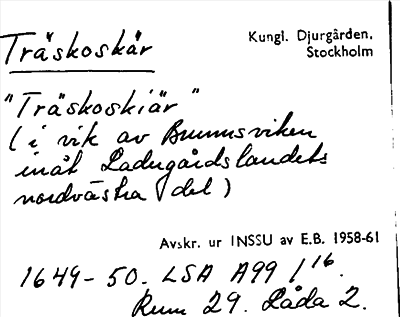 Träskoskär
Kungl. Djurgården,
Stockholm
"Träskoskiär"
(i vik av Brunnsviken
inåt Ladugårdslandets
nordvästra del)
Avskr. ur INSSU av E.B. 1958-61
1649-50. LSA A99 / 16.
Rum 29. Låda 2.